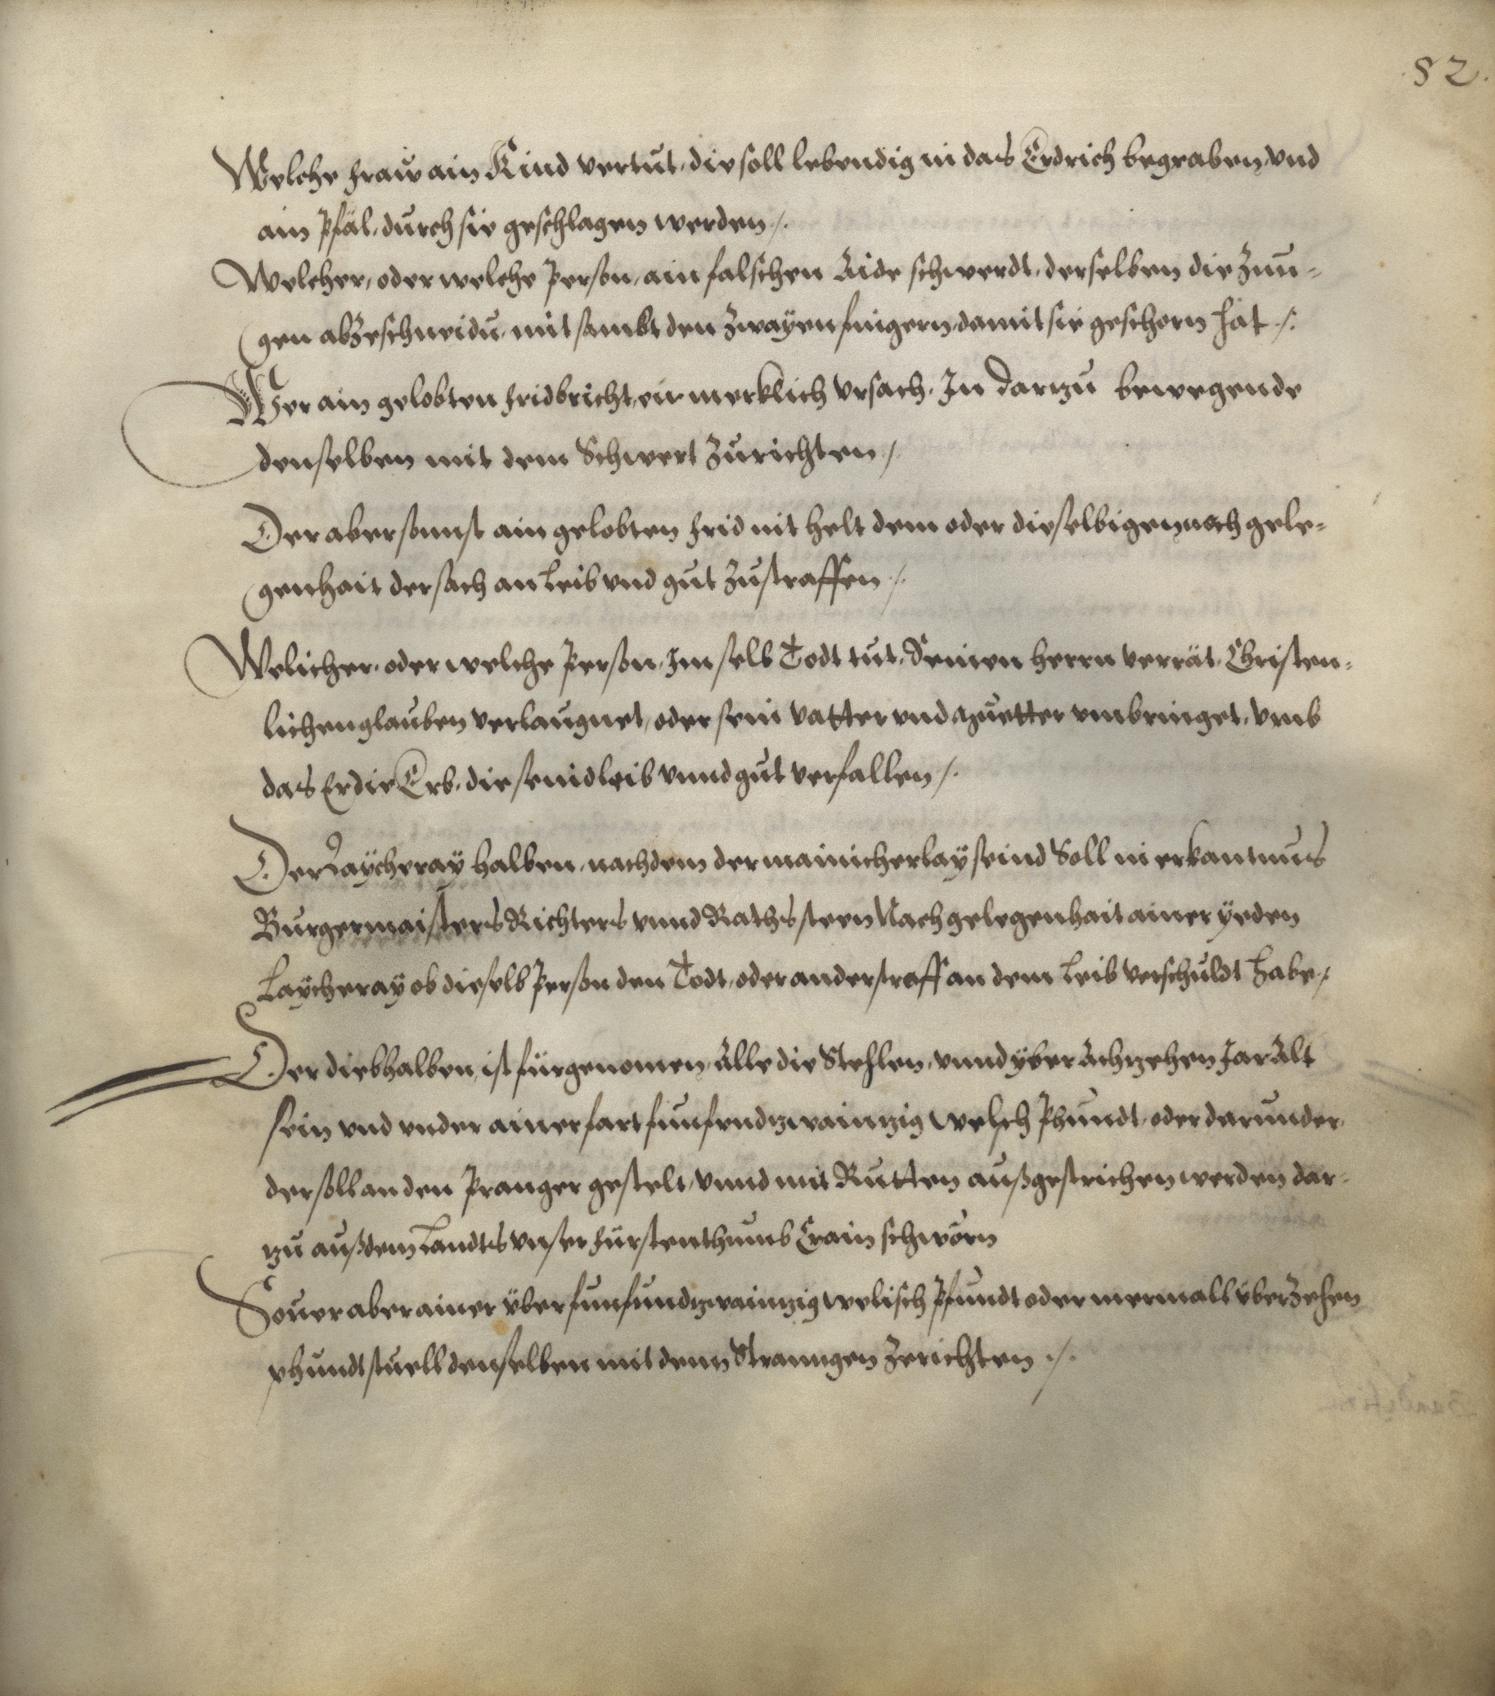 82.
Welche fraw ain Kind vertut, die soll lebendig in das Erdrich begraben, vnd
ain Pfäl, durch sie geschlagen werden /.
Welcher, oder welche Person, ain falschen Aide schwerdt, derselben die Zun=
gen abzeschneidn, mit sambt den Zwayen fingern, damit sie geschorn hat /.
Wer ain gelobten frid bricht, ein merklich vrsach, In darzu bewegende
denselben mit dem Schwert Zurichten /.
Der aber sonnst ain gelobten frid nit helt dem oder dieselbigen nach gele=
genhait der sach an Leib vnd gut Zustraffen /.
Welicher, oder welche Person, Im selb Todt tut, Seinen herrn verrät, Christen=
lichen glauben verlaugnet, oder sein vatter vnd muetter vmbringet, vmb
das Er die Erb, die sein leib vnnd gut verfallen /.
Der Laycheray halben, nachdem der mainicherlay seind Soll in erkantnus
Burgermaisters Richters vnnd Raths steen Nach gelegenhait ainer yeden
Laycheray ob dieselb Person den Todt, oder ander straff an dem Leib verschuldt habe /
Der dieb halben, ist fürgenomen, Alle die Stehlen, vnnd yber Achzehen Jar Alt
sein vnd vnder ainer fart funfundzwainzig welsch Phundt, oder darunder
der soll an den Pranger gestelt, vnnd mit Rutten außgestrichen werden dar=
zu auß dem Landts vnser fürstenthumb Crain schwörn
Souer aber ainer yber funfundzwainzig welisch Pfundt oder mermall yber Zehen
phundt stuell denselben mit dem Stranngen Zerichten /.